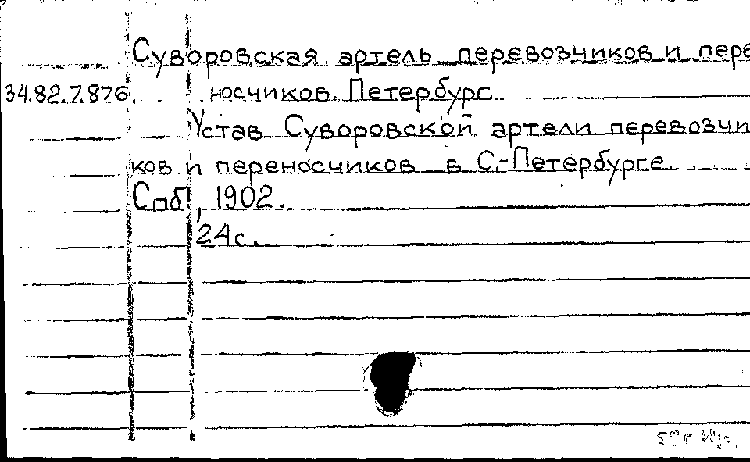 Суворовская артель перевозчиков и пере
34.82.7.876. носчиков. Петербург.
Устав Суворовской артели перевозчи
ков и переносчиков в С.-Петербурге.
Спб, 1902.
24с.